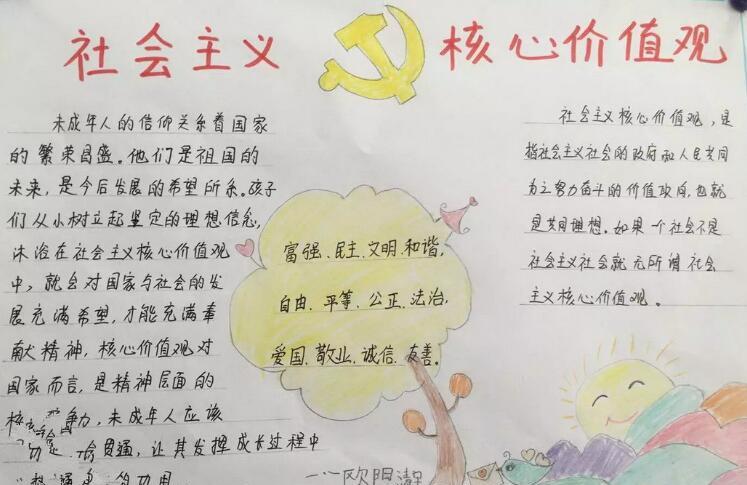 社会主义 核心价值观
未成年人的信仰关系着国家
的繁荣昌盛。他们是祖国的
未来,是今后发展的希望所系。孩子
们从小树立起坚定的理想信念,
沐浴在社会主义核心价值观
中,就会对国家与社会的发
展充满希望,才能充满奉
献精神,核心价值观对
国家而言,是精神层面的
争力,未成年人应该
贯通,让其发挥成长过程中
的功用
富强、民主、文明、和谐,
自由、平等、公正、法治,
爱国、敬业、诚信、友善。
社会主义核心价值观,是
指社会主义社会的政府和人民共同
为之努力奋斗的价值取向,也就
是共同理想。如果一个社会不是
社会主义社会就无所谓社会
主义核心价值观。
欧阳